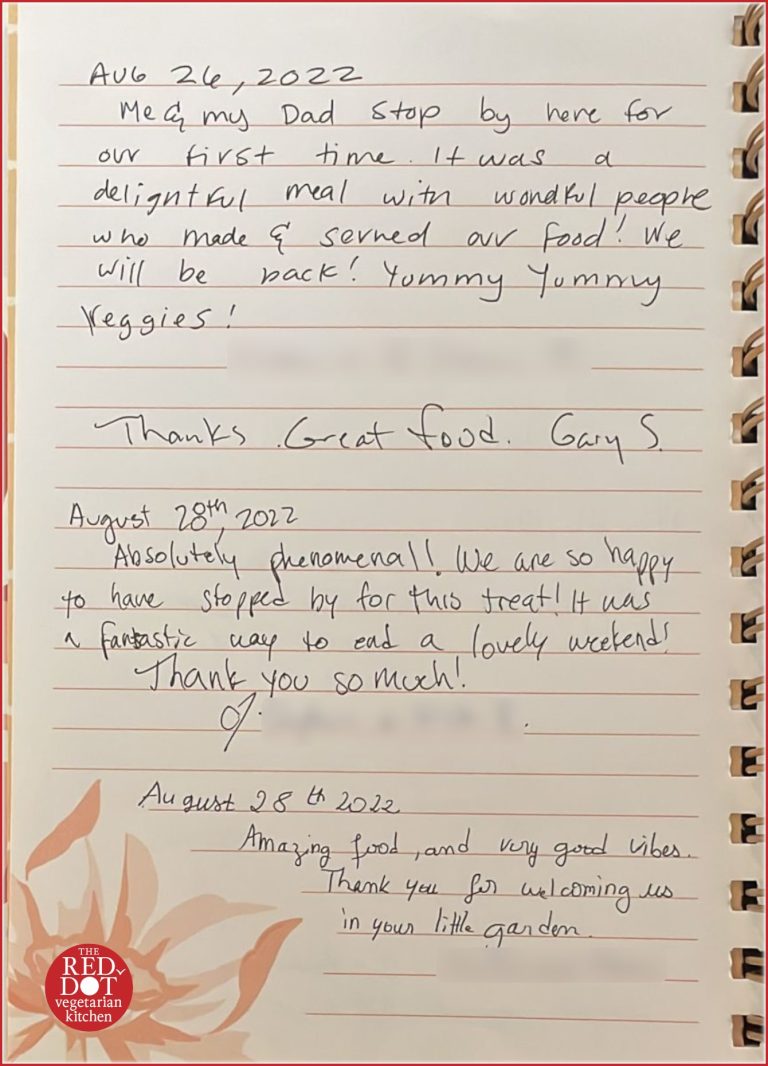 AUG 26, 2022
Me & my Dad stop by here for
our first time. It was a
delightful meal with wondful people
who made & served our food! We
will be back! Yummy Yummy
Veggies!
Thanks. Great food. Gary S.
August 28th, 2022
Absolutely phenomenal! We are so happy
to have stopped by for this treat! It was
a fantastic way to end a lovely weekend!
Thank you so much!
August 28th 2022
Amazing food, and very good vibes.
Thank you for welcoming us
in your little garden.
THE
RED
DOT
vegetarian
kitchen